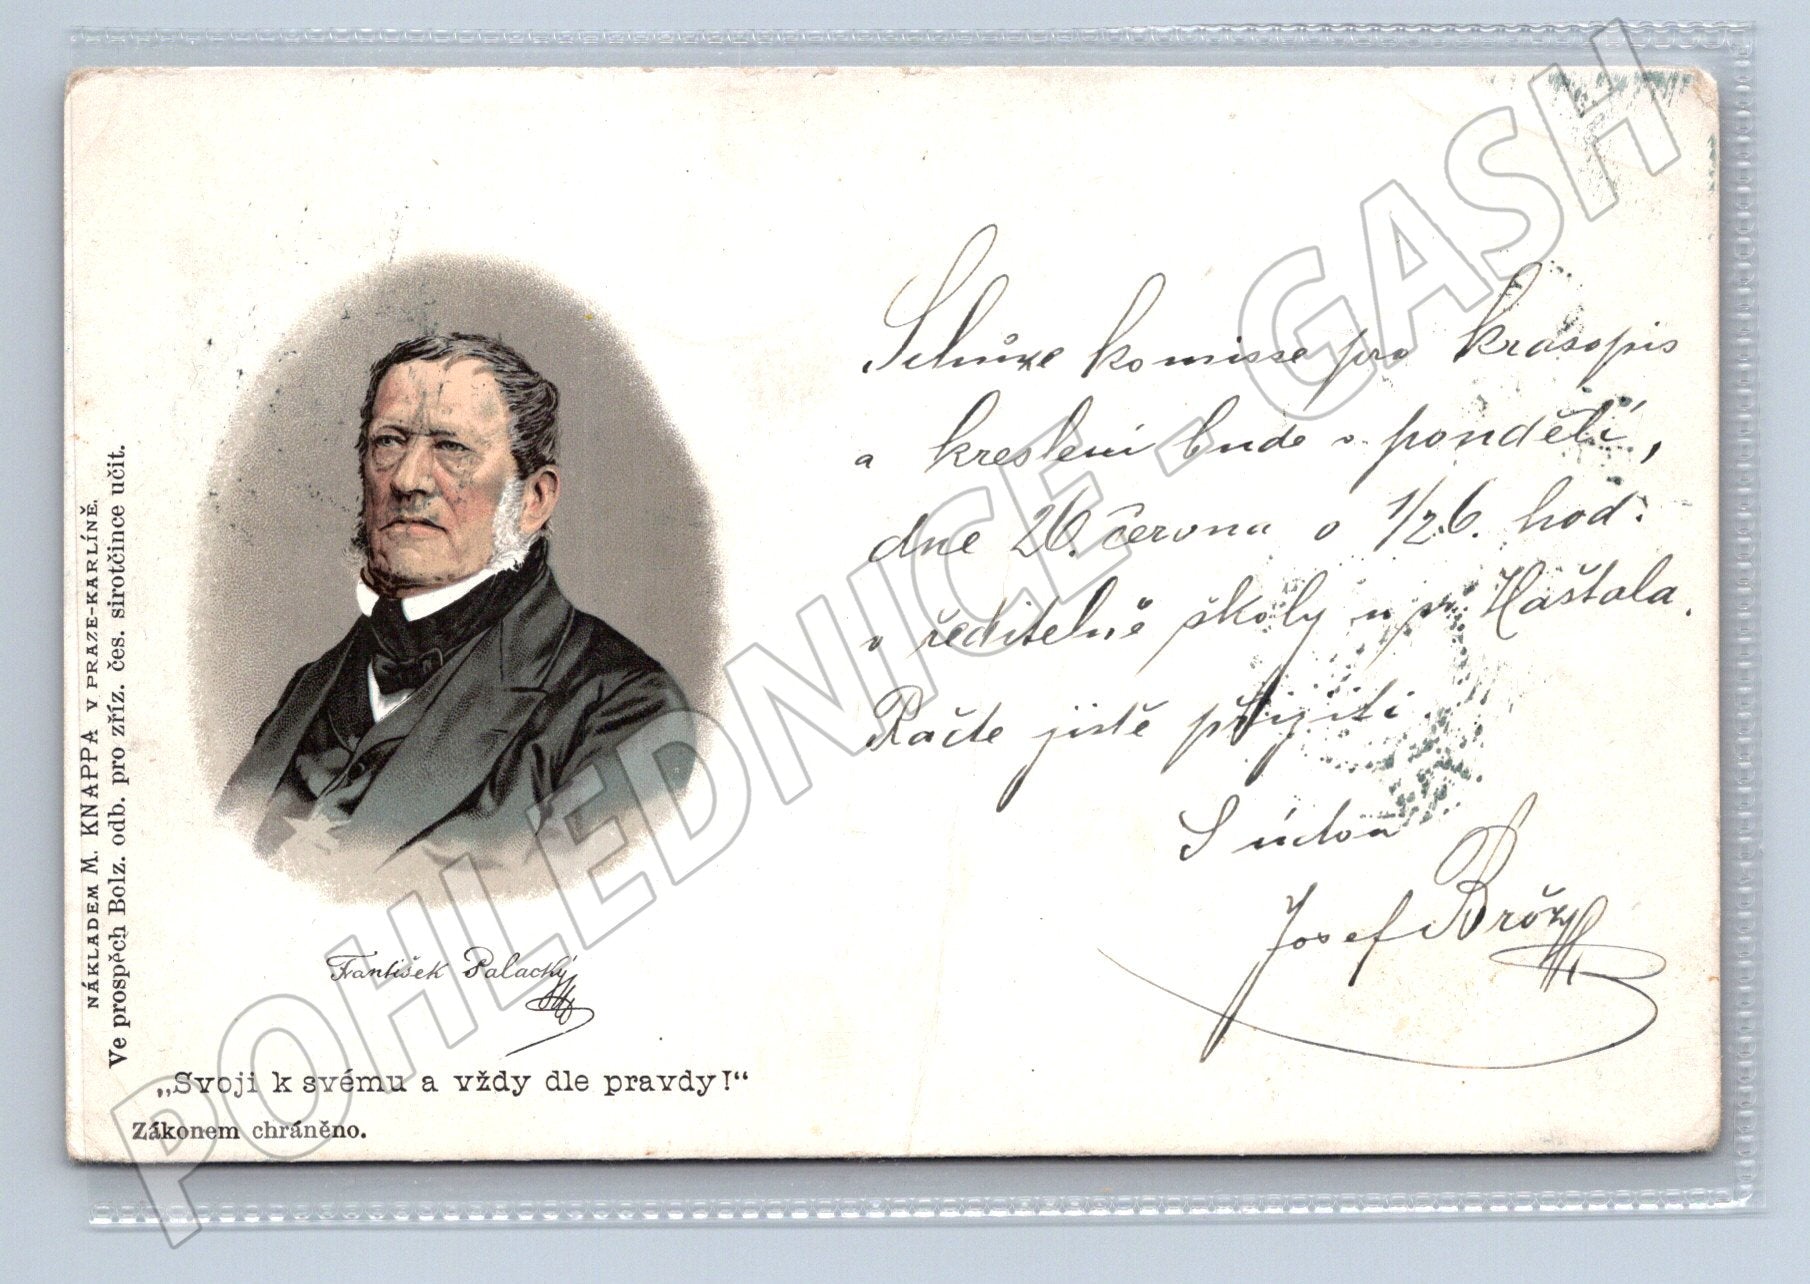 NÁKLADEM M. KNAPPA V PRAZE-KARLÍNĚ.
Ve prospěch Bolz. odb. pro zříz. čes. sirotčince učit.
František Palacký
„Svoji k svému a vždy dle pravdy!“
Zákonem chráněno.
Schůze komisse pro krasopis
a kreslení bude v pondělí,
dne 26. června o 1/2 6. hod.
v ředitelně školy u sv. Haštala.
Račte jistě přijíti.
S úctou
Josef Brož
POHLEDNICE - GASH